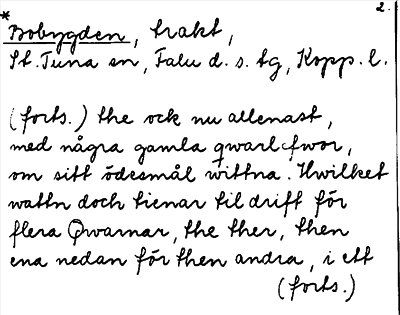 2.
* Bobygden, trakt,
St. Tuna sn, Falu d. s. tg, Kopp. l.
(forts.) the ock nu allenast,
med några gamla qwarlefwor,
om sitt ödesmål wittna. Hwilket
wattn doch tienar til drift för
flera Qwarnar, the ther, then
ena nedan för then andra, i ett
(forts.)